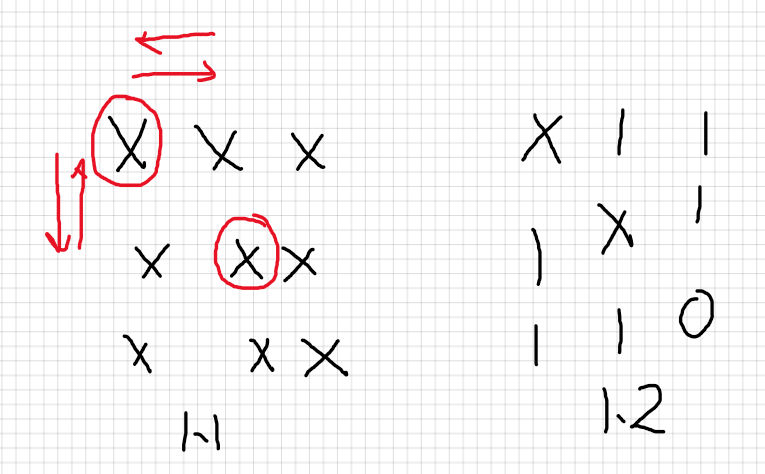 X X X
X X X
X X X
1.1
X 1 1
1 X 1
1 1 0
1.2